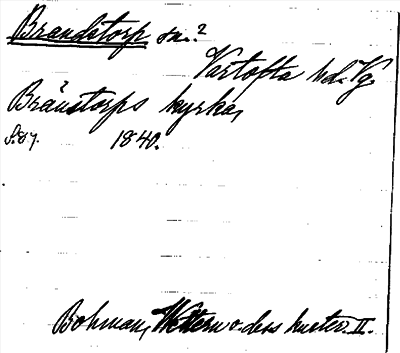 Brandstorp sn.?
Vartofta hd. Vg.
Brånstorps kyrka,
S. 87. 1840.
Bohman, Wettern o. dess kuster. II.